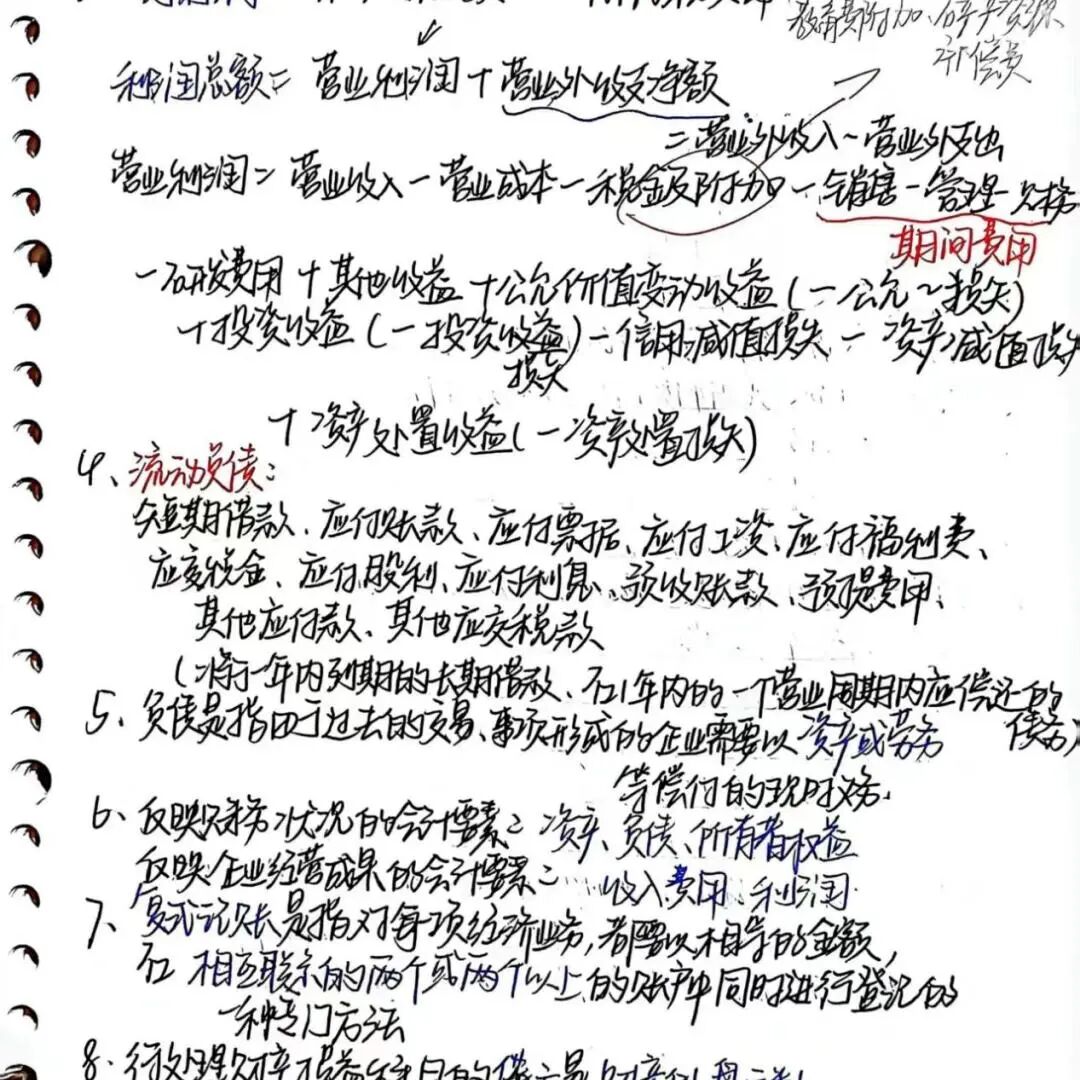 教育费附加、矿产资源
补偿费
利润总额＝营业利润＋营业外收支净额
＝营业外收入－营业外支出
营业利润＝营业收入－营业成本－税金及附加－销售－管理－财务
期间费用
－研发费用＋其他收益＋公允价值变动收益（－公允～损失）
＋投资收益（－投资收益损失）－信用减值损失－资产减值损失
＋资产处置收益（－资产处置损失）
4、流动负债：
短期借款、应付账款、应付票据、应付工资、应付福利费、
应交税金、应付股利、应付利息、预收账款、预提费用、
其他应付款、其他应交税款
（将于一年内到期的长期借款、在1年内的一个营业周期内应偿还的债务）
5、负债是指由于过去的交易、事项形成的企业需要以资产或劳务
等偿付的现时义务.
6、反映财务状况的会计要素：资产、负债、所有者权益
反映企业经营成果的会计要素：收入、费用、利润
7、复式记账是指对每项经济业务，都要以相等的金额，
在相互联系的两个或两个以上的账户中同时进行登记的
一种专门方法
8、